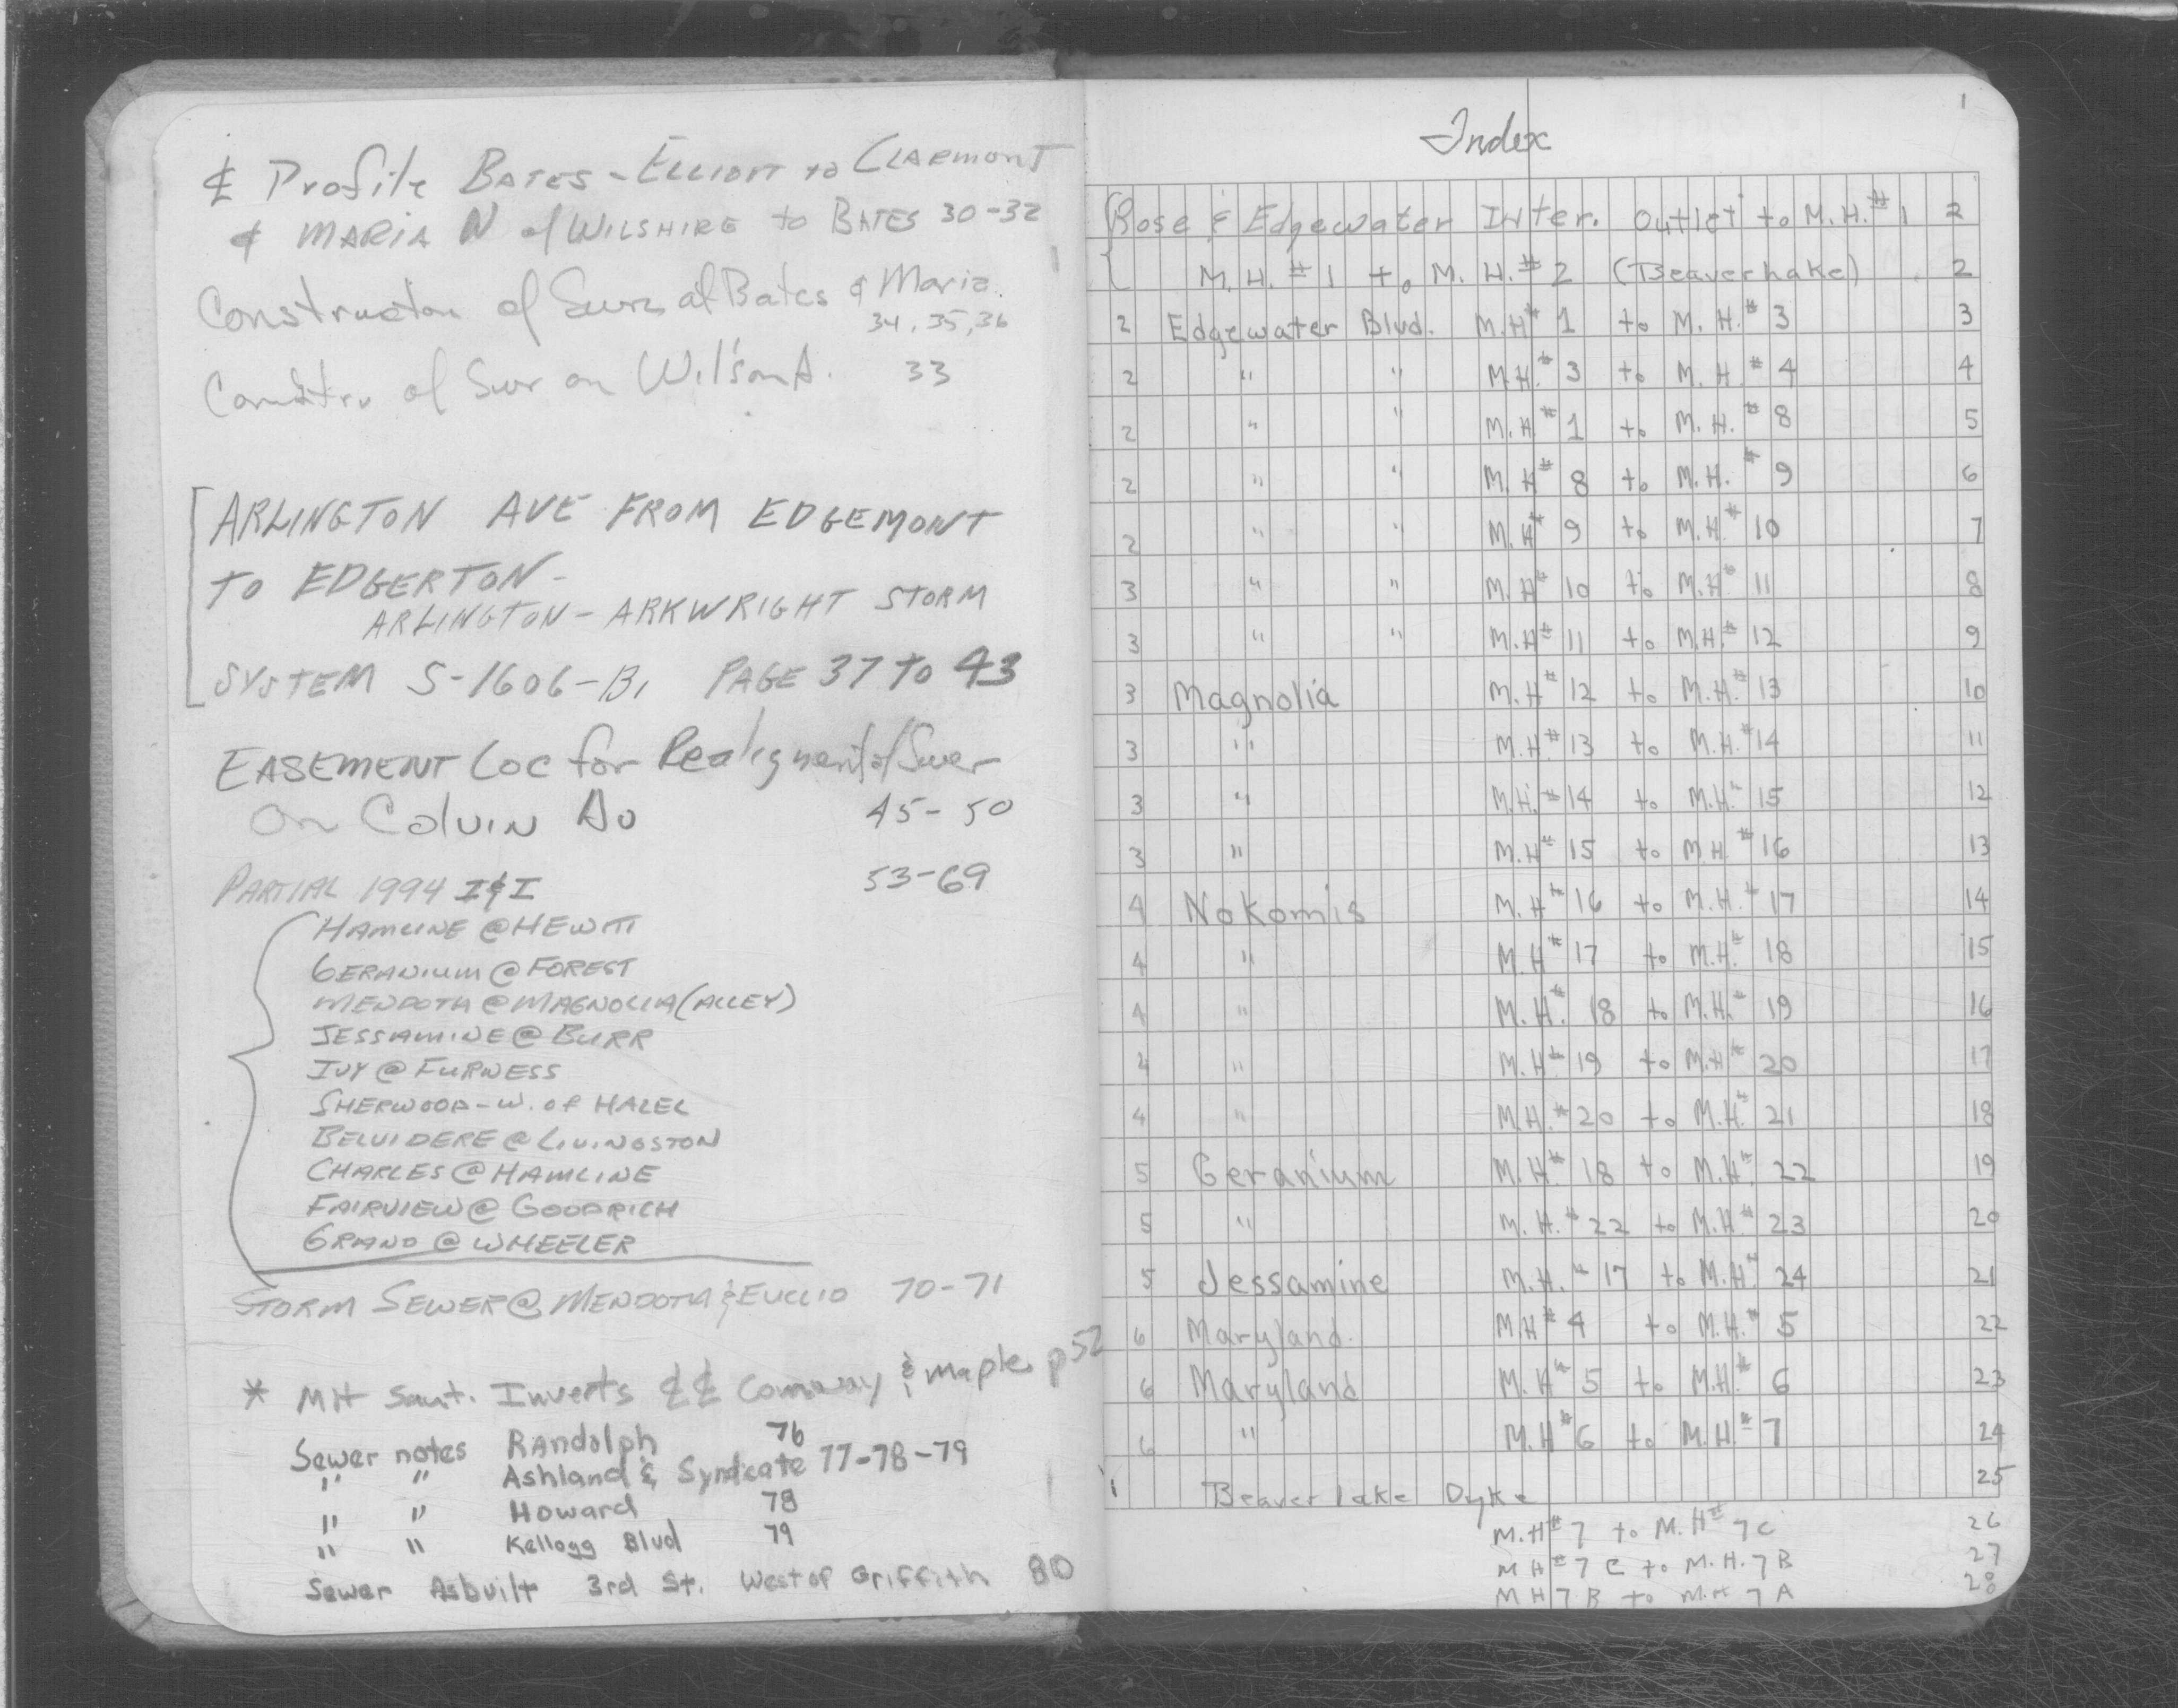 ℄ Profile BATES - ELLIOTT to CLARMONT
& MARIA N of WILSHIRE to BATES 30-32
Construction of Swrs at Bates & Maria
34, 35, 36
Constru of Swr on Wilson 33
ARLINGTON AVE FROM EDGEMONT
TO EDGERTON -
ARLINGTON - ARKWRIGHT STORM
SYSTEM S-1606-B, PAGE 37 TO 43
EASEMENT Loc for Realignment of Swer
on Colvin 45-50
PARTIAL 1994 I&I 53-69
HAMLINE @ HEWITT
GERANIUM @ FOREST
MENDOTA @ MAGNOLIA (ALLEY)
JESSAMINE @ BURR
IVY @ FURNESS
SHERWOOD - W. of HAZEL
BELVIDERE @ LIVINGSTON
CHARLES @ HAMLINE
FAIRVIEW @ GOODRICH
GRAND @ WHEELER
STORM SEWER @ MENDOTA & EUCLID 70-71
* MH Sant. Inverts ℄ ℄ Conway & Maple p 52
Sewer notes Randolph 76
" " Ashland & Syndcate 77-78-79
" " Howard 78
" " Kellogg Blvd 79
Sewer Asbuilt 3rd St. West of Griffith 80
1
Index
Rose & Edgewater Inter. Outlet to M.H.# 1 2
M.H.# 1 to M.H.# 2 (Beaver Lake) 2
2 Edgewater Blvd. M.H# 1 to M.H.# 3 3
2 " " M.H.# 3 to M.H.# 4 4
2 " " M.H.# 1 to M.H.# 8 5
2 " " M.H# 8 to M.H.# 9 6
2 " " M.H# 9 to M.H.# 10 7
3 " " M.H# 10 to M.H# 11 8
3 " " M.H# 11 to M.H.# 12 9
3 Magnolia M.H# 12 to M.H.# 13 10
3 " M.H# 13 to M.H.# 14 11
3 " M.H.# 14 to M.H.# 15 12
3 " M.H# 15 to M.H.# 16 13
4 Nokomis M.H# 16 to M.H.# 17 14
4 " M.H# 17 to M.H.# 18 15
4 " M.H.# 18 to M.H.# 19 16
4 " M.H# 19 to M.H# 20 17
4 " M.H.# 20 to M.H.# 21 18
5 Geranium M.H.# 18 to M.H.# 22 19
5 " M.H.# 22 to M.H# 23 20
5 Jessamine M.H.# 17 to M.H.# 24 21
6 Maryland M.H# 4 to M.H.# 5 22
6 Maryland M.H# 5 to M.H.# 6 23
6 " M.H# 6 to M.H.# 7 24
1 Beaver Lake Dyke 25
M.H# 7 to M.H# 7C 26
MH# 7C to M.H. 7B 27
MH 7B to M.H 7A 28